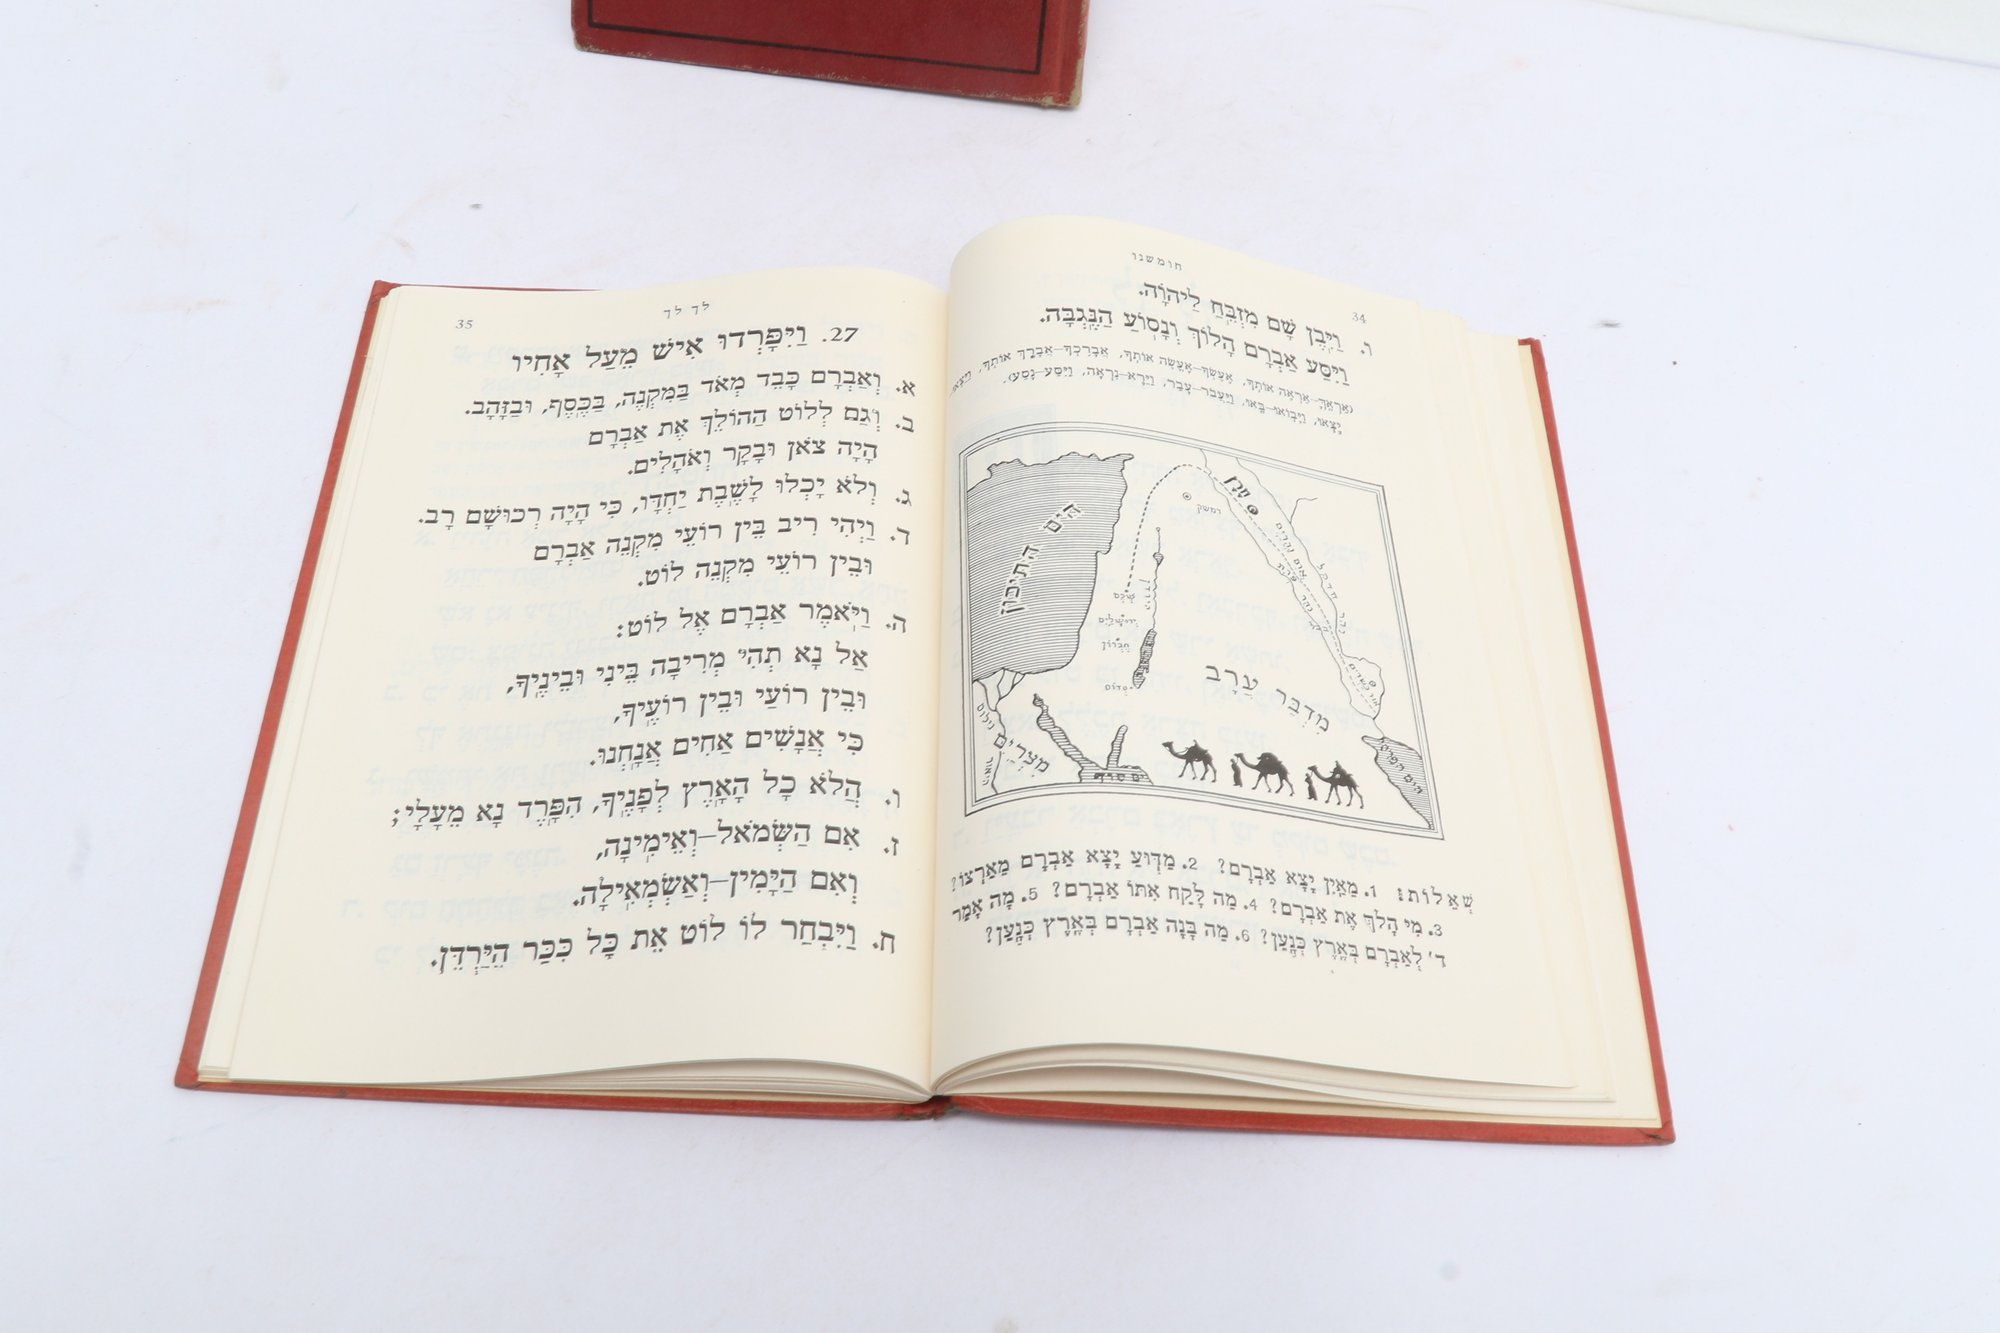 חומשנו
34
ו. וַיִּבֶן שָׁם מִזְבֵּחַ לַיהוָֹה.
וַיִּסַּע אַבְרָם הָלוֹךְ וְנָסוֹעַ הַנֶּגְבָּה.
(אַרְאֶךָּ–אַרְאֶה אוֹתְךָ, אֶעֶשְׂךָ–אֶעֱשֶׂה אוֹתְךָ, אֲבָרֶכְךָ–אֲבָרֵךְ אוֹתְךָ, וַיֵּצְאוּ–
יָצְאוּ, וַיָּבוֹאוּ–בָּאוּ, וַיַּעֲבֹר–עָבַר, וַיֵּרָא–נִרְאָה, וַיִּסַּע–נָסַע).
הַיָּם הַתִּיכוֹן
חָרָן
דמשק
ארם נהרים
נהר פרת
נהר חדקל
ירדן
שכם
ירושלים
חֶבְרוֹן
סדום
מִדְבַּר עֲרָב
אור כשדים
נילוס
היאור
מִצְרַיִם
ים סוף
הים הפרסי
שְׁאֵלוֹת: 1. מֵאַיִן יָצָא אַבְרָם? 2. מַדּוּעַ יָצָא אַבְרָם מֵאַרְצוֹ?
3. מִי הָלַךְ אֶת אַבְרָם? 4. מַה לָּקַח אִתּוֹ אַבְרָם? 5. מָה אָמַר
ד' לְאַבְרָם בְּאֶרֶץ כְּנָעַן? 6. מַה בָּנָה אַבְרָם בְּאֶרֶץ כְּנָעַן?
לך לך
35
27. וַיִּפָּרְדוּ אִישׁ מֵעַל אָחִיו
א. וְאַבְרָם כָּבֵד מְאֹד בַּמִּקְנֶה, בַּכֶּסֶף, וּבַזָּהָב.
ב. וְגַם לְלוֹט הַהוֹלֵךְ אֶת אַבְרָם
הָיָה צֹאן וּבָקָר וְאֹהָלִים.
ג. וְלֹא יָכְלוּ לָשֶׁבֶת יַחְדָּו, כִּי הָיָה רְכוּשָׁם רָב.
ד. וַיְהִי רִיב בֵּין רוֹעֵי מִקְנֵה אַבְרָם
וּבֵין רוֹעֵי מִקְנֵה לוֹט.
ה. וַיֹּאמֶר אַבְרָם אֶל לוֹט:
אַל נָא תְּהִי מְרִיבָה בֵּינִי וּבֵינֶיךָ,
וּבֵין רוֹעַי וּבֵין רוֹעֶיךָ,
כִּי אֲנָשִׁים אַחִים אֲנָחְנוּ.
ו. הֲלֹא כָל הָאָרֶץ לְפָנֶיךָ, הִפָּרֶד נָא מֵעָלָי;
ז. אִם הַשְּׂמֹאל–וְאֵימִינָה,
וְאִם הַיָּמִין–וְאַשְׂמְאִילָה.
ח. וַיִּבְחַר לוֹ לוֹט אֵת כָּל כִּכַּר הַיַּרְדֵּן.